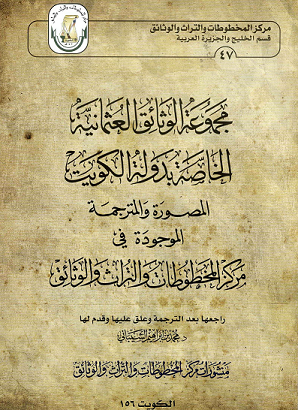 مركز المخطوطات والتراث والوثائق
قسم الخليج والجزيرة العربية
٤٧
مجموعة الوثائق العثمانية
الخاصة بدولة الكويت
المصورة والمترجمة
الموجودة في
مركز المخطوطات والتراث والوثائق
راجعها بعد الترجمة وعلق عليها وقدم لها
د. محمد بن إبراهيم الشيباني
منشورات مركز المخطوطات والتراث والوثائق
الكويت ١٥٦